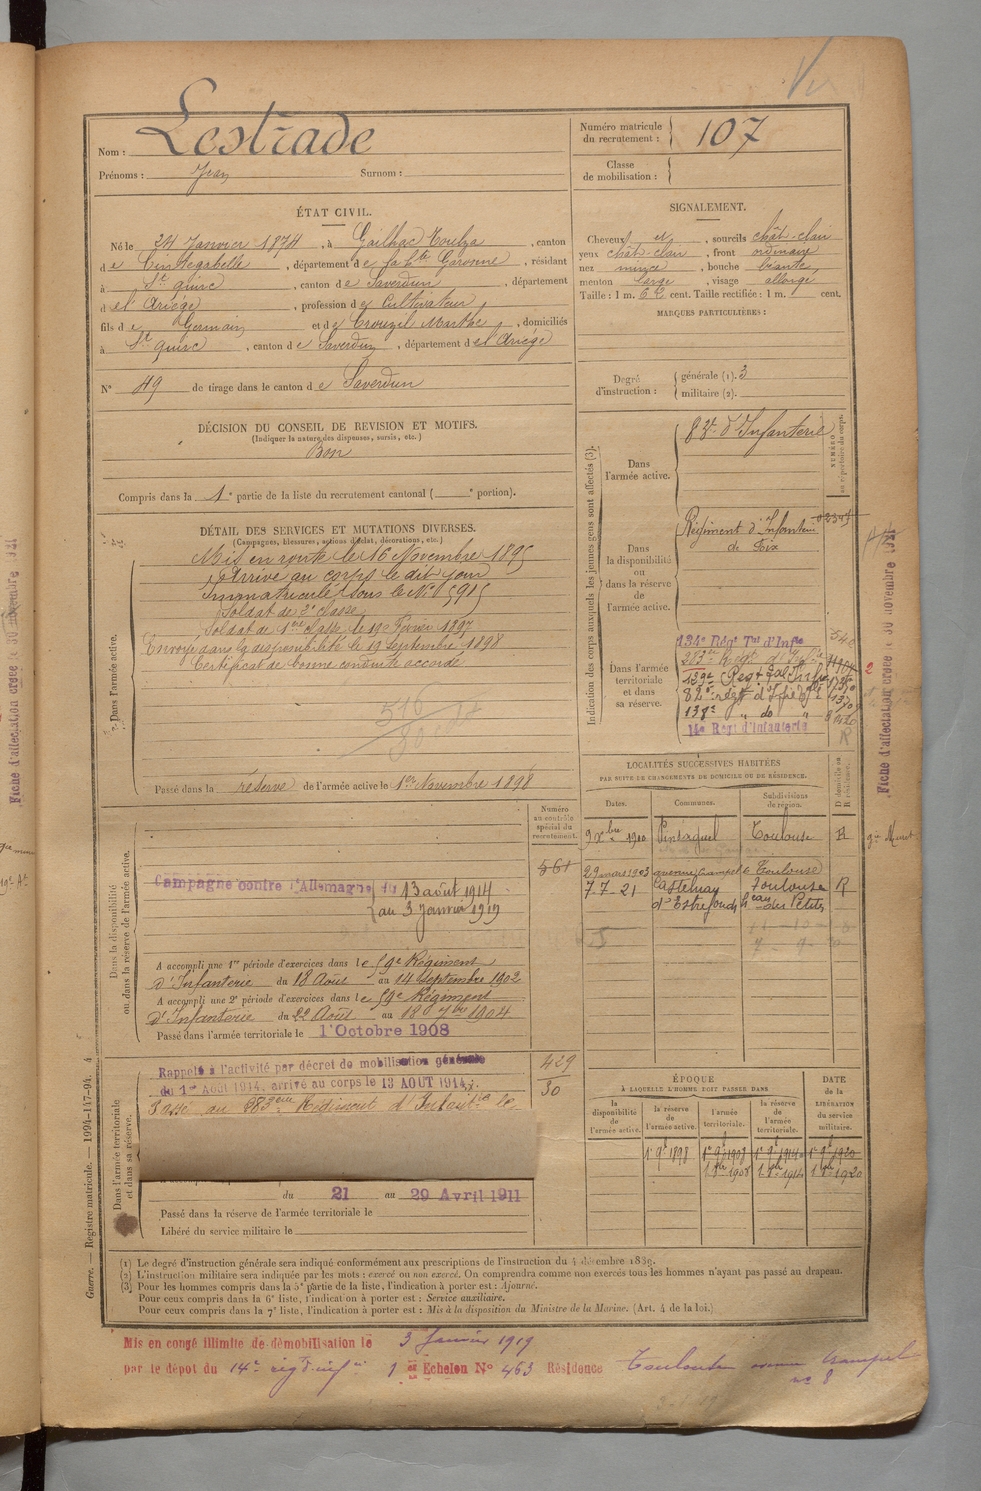 Nom : Lestrade
Prénoms : Jean Surnom :
Numéro matricule du recrutement : 107
Classe de mobilisation :
ÉTAT CIVIL.
Né le 24 Janvier 1874, à Gailhac Toulza, canton
de Cintegabelle, département de la Hte Garonne, résidant
à St Quirc, canton de Saverdun, département
de l'Ariège, profession de Cultivateur
fils de Germain et de Crouzil Marthe, domiciliés
à St Quirc, canton de Saverdun, département de l'Ariège
N° 49 de tirage dans le canton de Saverdun
SIGNALEMENT.
Cheveux et , sourcils chât-clair
yeux chât-clair, front ordinaire
nez mince, bouche béante,
menton large, visage allongé
Taille : 1 m. 62 cent. Taille rectifiée : 1 m. cent.
MARQUES PARTICULIÈRES :
Degré d'instruction : générale (1). 3
militaire (2).
DÉCISION DU CONSEIL DE REVISION ET MOTIFS.
(Indiquer la nature des dispenses, sursis, etc.)
Bon
Compris dans la 1e partie de la liste du recrutement cantonal ( e portion).
DÉTAIL DES SERVICES ET MUTATIONS DIVERSES.
(Campagnes, blessures, actions d'éclat, décorations, etc.)
Dans l'armée active.
Mis en route le 16 Novembre 1895
Arrivé au corps le dit jour
Immatriculé sous le N° 5915
Soldat de 2e classe
Soldat de 1ère classe le 19 Février 1897
Envoyé dans la disponibilité le 19 Septembre 1898
Certificat de bonne conduite accordé
Passé dans la réserve de l'armée active le 1er Novembre 1898
Indication des corps auxquels les jeunes gens sont affectés (3).
NUMÉRO au répertoire du corps.
Dans l'armée active.
83e d'Infanterie
Dans la disponibilité ou dans la réserve de l'armée active.
Régiment d'Infanterie
de Foix
Dans l'armée territoriale et dans sa réserve.
134e Régt Tal d'Infie
283e Régt d'Infie
129e Regt Tal Infie
82e régt d'Infie
138e " do "
14e Régt d'Infanterie
Numéro au contrôle spécial du recrutement.
561
Dans la disponibilité ou dans la réserve de l'armée active.
Campagne contre l'Allemagne du 13 août 1914
au 3 Janvier 1919
A accompli une 1re période d'exercices dans le 59e Régiment
d'Infanterie du 18 Août au 14 Septembre 1902
A accompli une 2e période d'exercices dans le 59e Régiment
d'Infanterie du 22 Août au 18 7bre 1904
Passé dans l'armée territoriale le 1er Octobre 1908
LOCALITÉS SUCCESSIVES HABITÉES
PAR SUITE DE CHANGEMENTS DE DOMICILE OU DE RÉSIDENCE.
Dates. Communes. Subdivisions de région. D domicile ou R résidence.
9 Xbre 1900 Pinsaguel Toulouse R
29 mars 1903 Toulouse
7.7.21 Castelnau Toulouse R
d'Estrefonds
Dans l'armée territoriale et dans sa réserve.
Rappelé à l'activité par décret de mobilisation générale
du 1er Août 1914, arrivé au corps le 13 AOUT 1914.
Passé au 283ème Régiment d'Infanterie le
429
30
du 21 au 29 Avril 1911
Passé dans la réserve de l'armée territoriale le
Libéré du service militaire le
ÉPOQUE
À LAQUELLE L'HOMME DOIT PASSER DANS
la disponibilité de l'armée active.
la réserve de l'armée active.
l'armée territoriale.
la réserve de l'armée territoriale.
DATE de la LIBÉRATION du service militaire.
(1) Le degré d'instruction générale sera indiqué conformément aux prescriptions de l'instruction du 4 décembre 1889.
(2) L'instruction militaire sera indiquée par les mots : exercé ou non exercé. On comprendra comme non exercés tous les hommes n'ayant pas passé au drapeau.
(3) Pour les hommes compris dans la 5e partie de la liste, l'indication à porter est : Ajourné.
Pour ceux compris dans la 6e liste, l'indication à porter est : Service auxiliaire.
Pour ceux compris dans la 7e liste, l'indication à porter est : Mis à la disposition du Ministre de la Marine. (Art. 4 de la loi.)
Mis en congé illimité de démobilisation le 3 Janvier 1919
par le dépôt du 14e rég d'infie 1er Echelon N° 463 Résidence Toulouse avenue Crampel
n° 8
Guerre. — Registre matricule. — 1994-147-94. 4
Fiche d'affectation créée le 30 novembre 1921